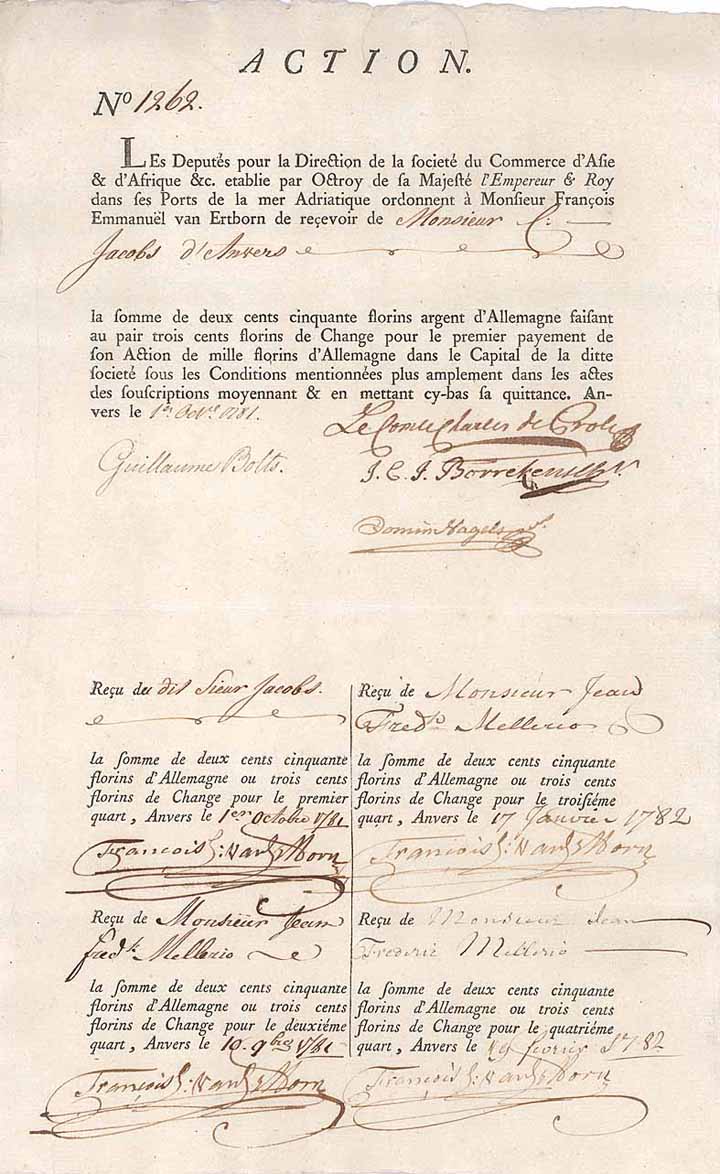 ACTION.
No 1262.
LEs Deputés pour la Direction de la societé du Commerce d'Asie
& d'Afrique &c. etablie par Octroy de sa Majesté l'Empereur & Roy
dans ses Ports de la mer Adriatique ordonnent à Monsieur François
Emmanuël van Ertborn de reçevoir de Monsieur C:
Jacobs d'Anvers
la somme de deux cents cinquante florins argent d'Allemagne faisant
au pair trois cents florins de Change pour le premier payement de
son Action de mille florins d'Allemagne dans le Capital de la ditte
societé sous les Conditions mentionnées plus amplement dans les actes
des souscriptions moyennant & en mettant cy-bas sa quittance. An-
vers le 1er Oct 1781.
Le Comte Charles de
Guillaume Bolts.
J. C. J. Borrekens
Domin Nagels
Reçu du dit Sieur Jacobs.
la somme de deux cents cinquante
florins d'Allemagne ou trois cents
florins de Change pour le premier
quart, Anvers le 1er Octobre 1781
François E: van Ertborn
Reçu de Monsieur Jean
Fredk Mellerio
la somme de deux cents cinquante
florins d'Allemagne ou trois cents
florins de Change pour le troisiéme
quart, Anvers le 17 Janvier 1782
François E: van Ertborn
Reçu de Monsieur Jean
fredk Mellerio
la somme de deux cents cinquante
florins d'Allemagne ou trois cents
florins de Change pour le deuxiéme
quart, Anvers le 10. 9bre 1781
François E: van Ertborn
Reçu de Monsieur Jean
Frederic Mellerio
la somme de deux cents cinquante
florins d'Allemagne ou trois cents
florins de Change pour le quatriéme
quart, Anvers le 19 fevrier 1782
François E: van Ertborn